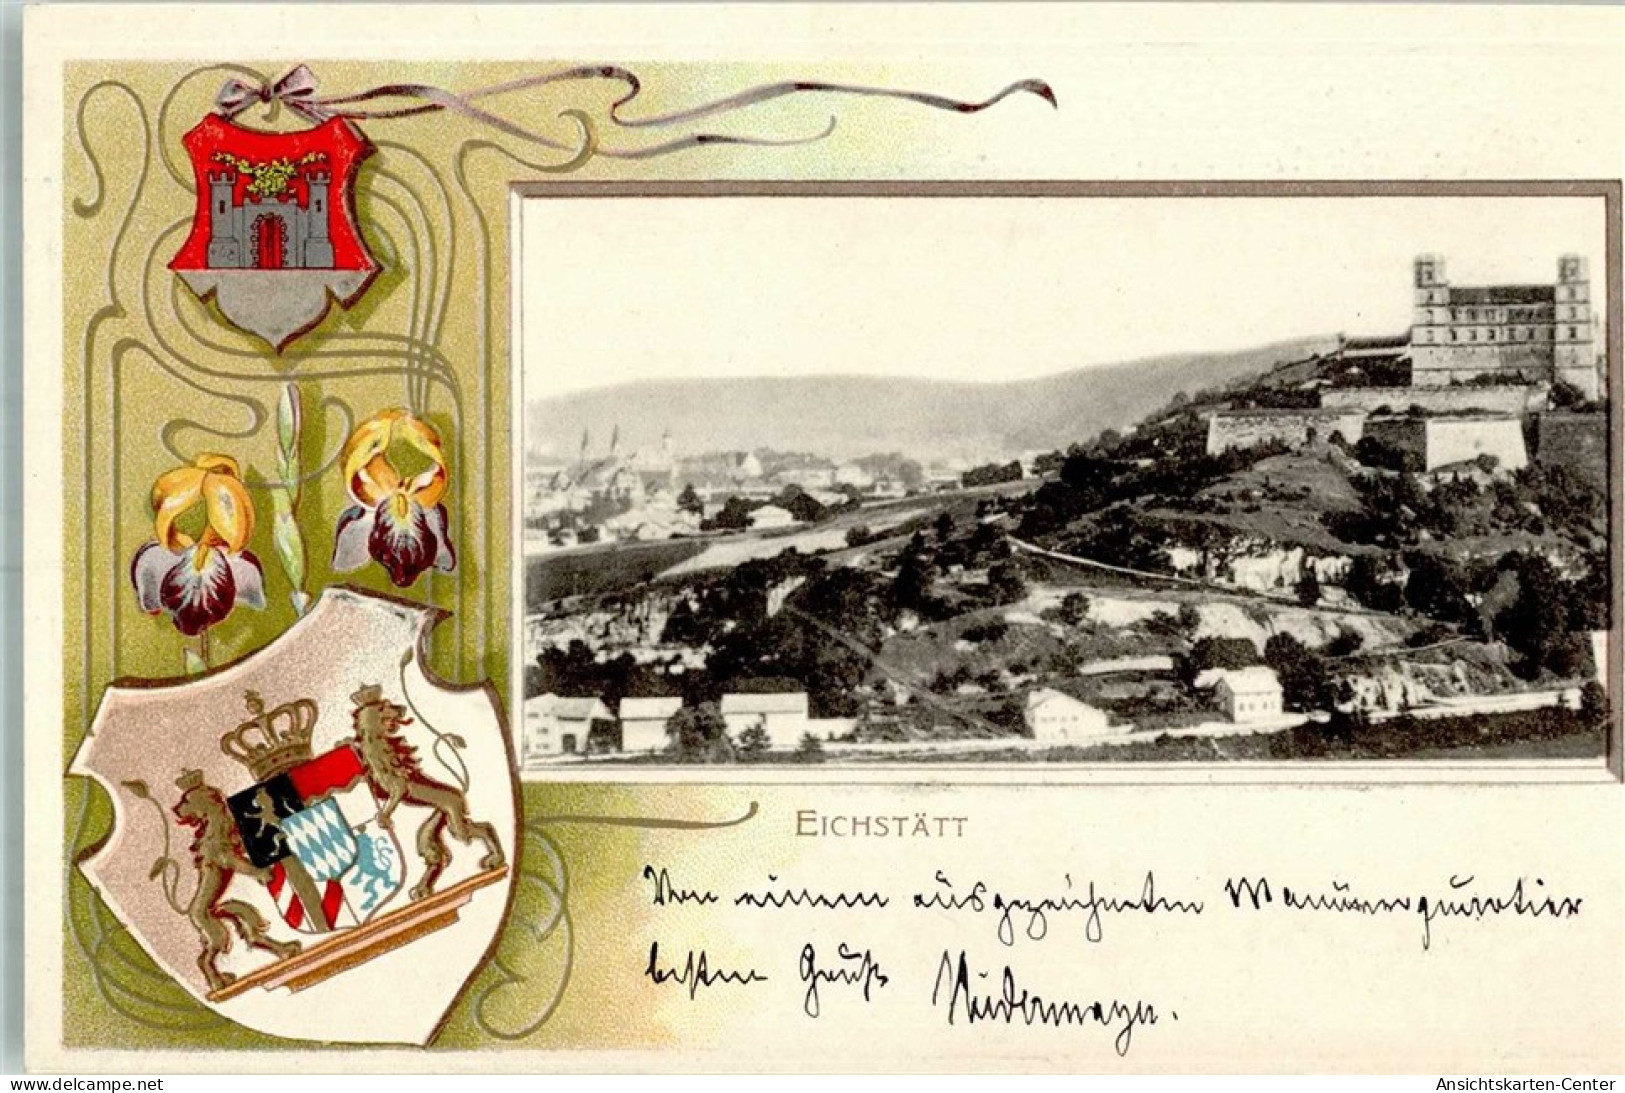 EICHSTÄTT
Von einem ausgezeichneten Manöverquartier
besten Gruß Niedermayer.
www.delcampe.net
Ansichtskarten-Center